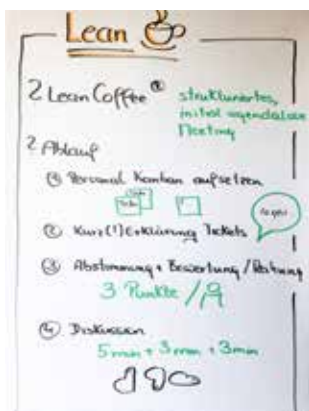 Lean
? Lean Coffee
strukturiertes,
initial agendaloses
Meeting
? Ablauf
① Personal Kanban aufsetzen
② Kurz(!) Erklärung Tickets
③ Abstimmung + Bewertung /
3 Punkte /
④ Diskussion
5min + 3min + 3min